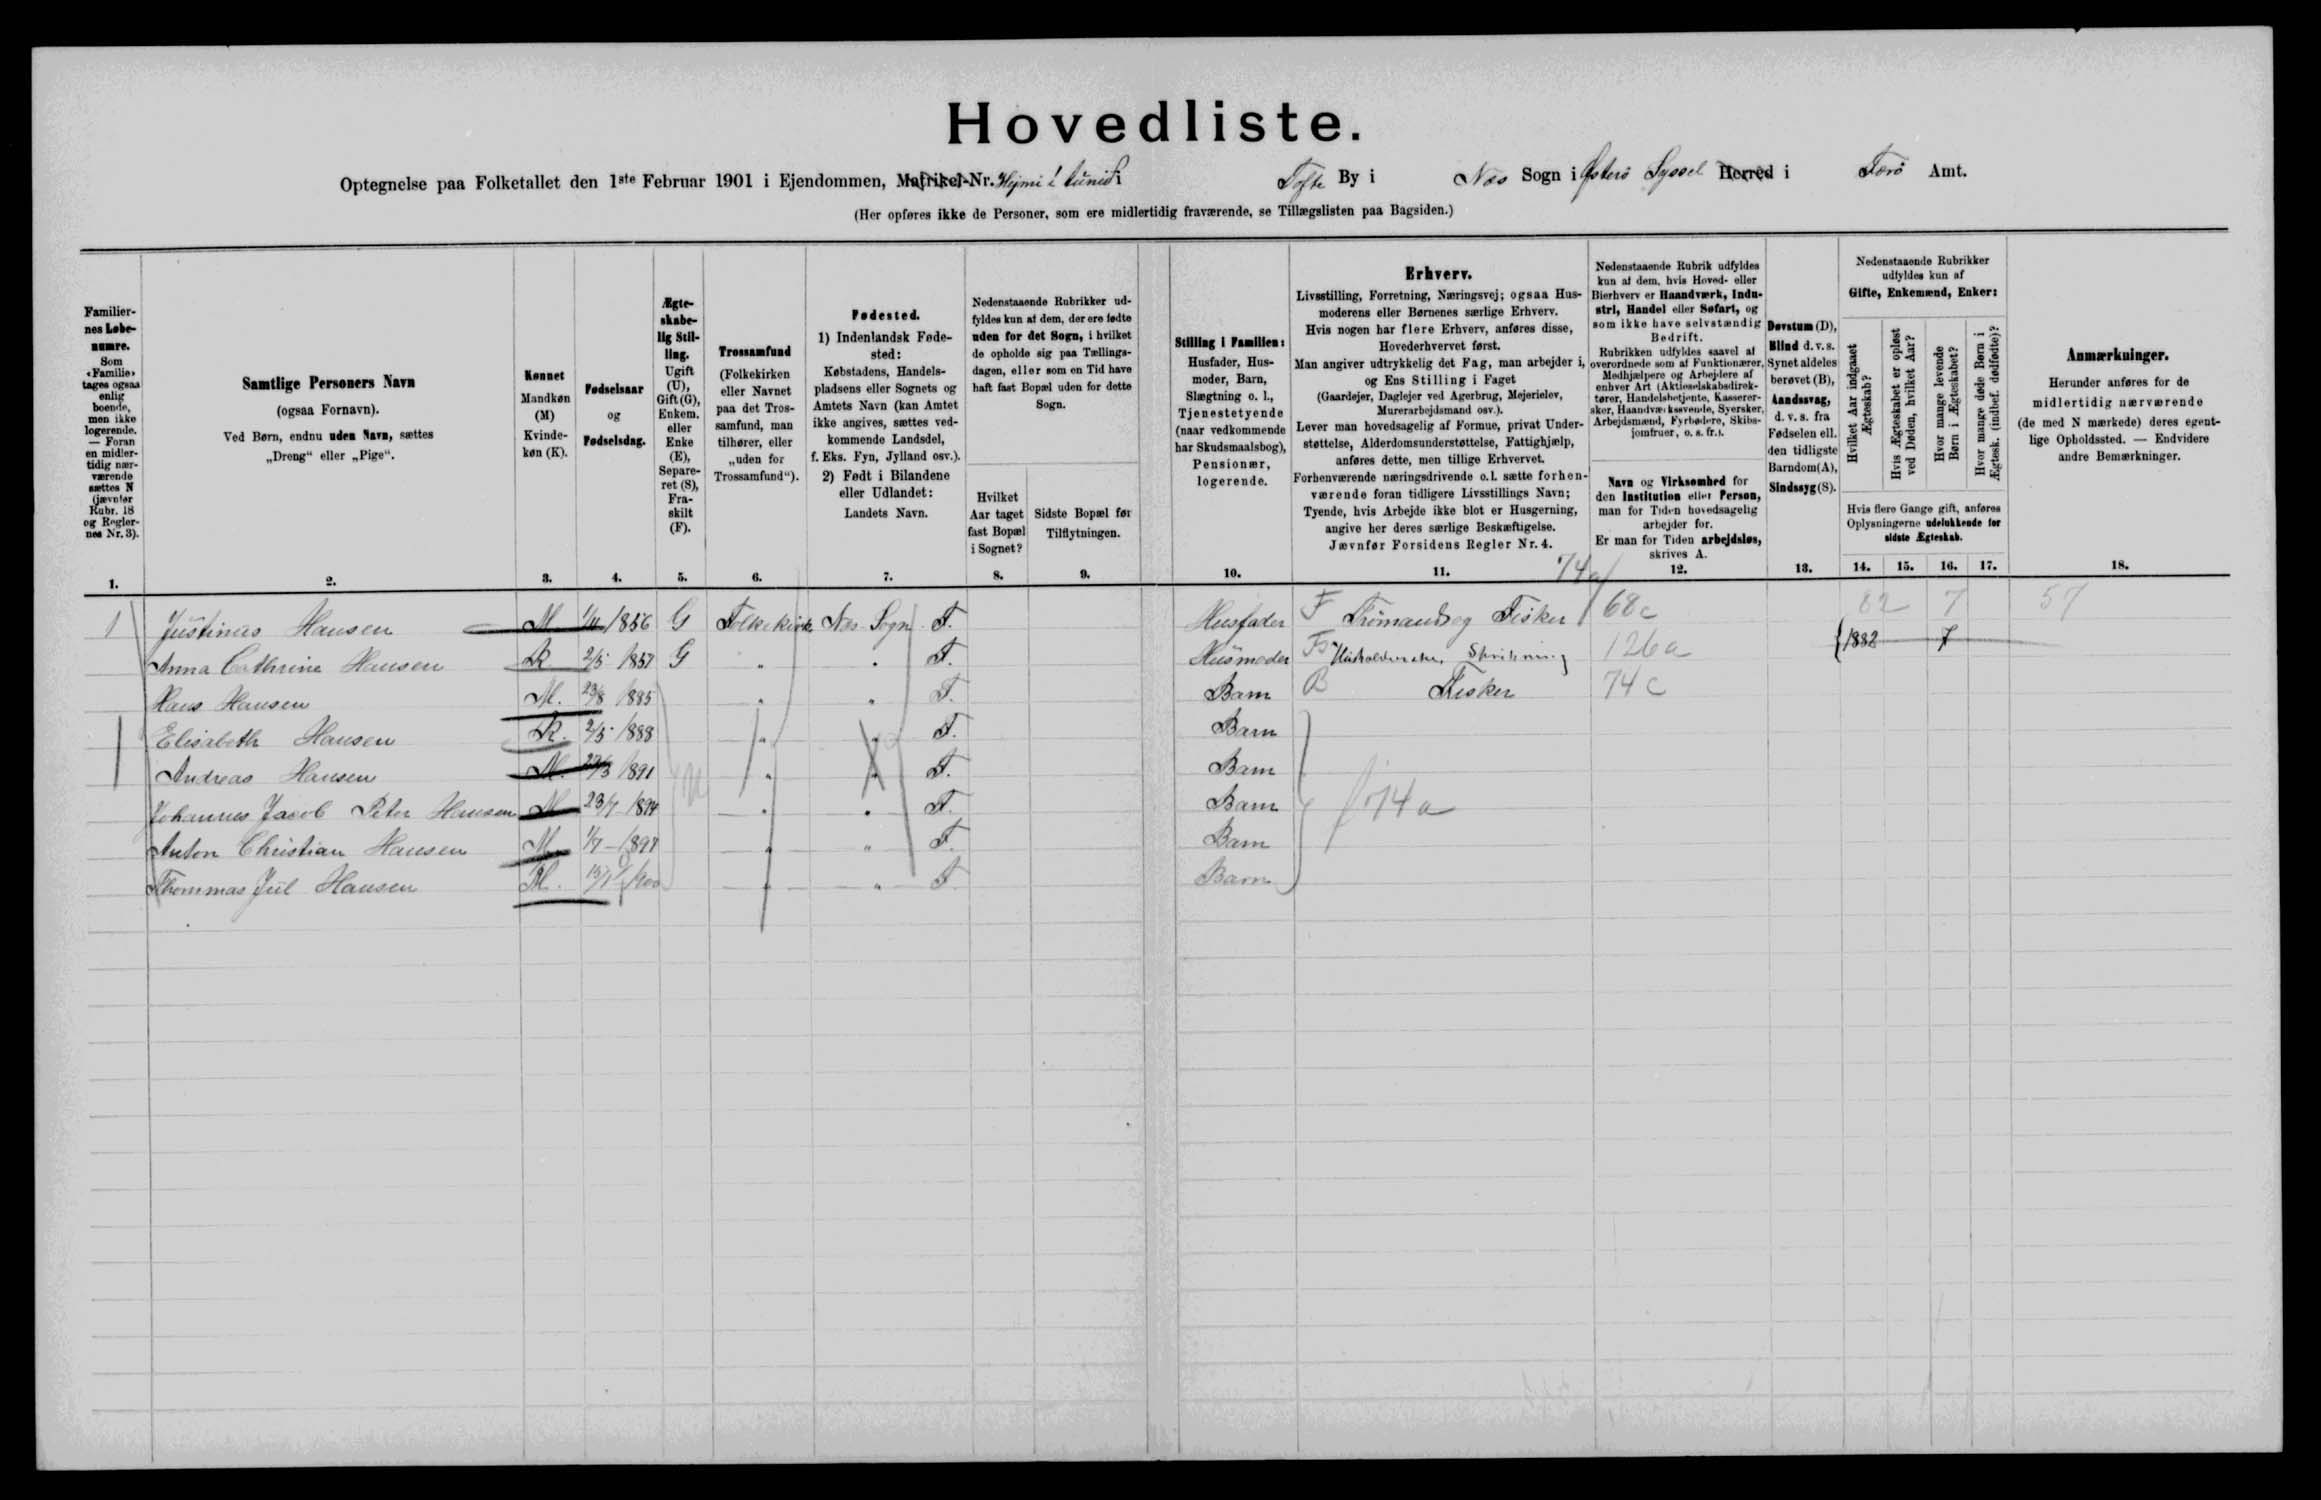 Hovedliste.
Optegnelse paa Folketallet den 1ste Februar 1901 i Ejendommen, Matrikel-Nr. Hejmi i túni i Tofte By i Næs Sogn i Østerø Syssel Herred i Færø Amt.
(Her opføres ikke de Personer, som ere midlertidig fraværende, se Tillægslisten paa Bagsiden.)
Familier-
nes Løbe-
numre.
Som
«Familie»
tages ogsaa
enlig
boende,
men ikke
logerende.
— Foran
en midler-
tidig nær-
værende
sættes N
(jævnfør
Rubr. 18
og Regler-
nes Nr. 3).
1.
Samtlige Personers Navn
(ogsaa Fornavn).
Ved Børn, endnu uden Navn, sættes
„Dreng“ eller „Pige“.
2.
Kønnet
Mandkøn
(M)
Kvinde-
køn (K).
3.
Fødselsaar
og
Fødselsdag.
4.
Ægte-
skabe-
lig Stil-
ling.
Ugift
(U),
Gift (G),
Enkem.
eller
Enke
(E),
Separe-
ret (S),
Fra-
skilt
(F).
5.
Trossamfund
(Folkekirken
eller Navnet
paa det Tros-
samfund, man
tilhører, eller
„uden for
Trossamfund“).
6.
Fødested.
1) Indenlandsk Føde-
sted:
Købstadens, Handels-
pladsens eller Sognets og
Amtets Navn (kan Amtet
ikke angives, sættes ved-
kommende Landsdel,
f. Eks. Fyn, Jylland osv.).
2) Født i Bilandene
eller Udlandet:
Landets Navn.
7.
Nedenstaaende Rubrikker ud-
fyldes kun af dem, der ere fødte
uden for det Sogn, i hvilket
de opholde sig paa Tællings-
dagen, eller som en Tid have
haft fast Bopæl uden for dette
Sogn.
Hvilket
Aar taget
fast Bopæl
i Sognet?
8.
Sidste Bopæl før
Tilflytningen.
9.
Stilling i Familien:
Husfader, Hus-
moder, Barn,
Slægtning o. l.,
Tjenestetyende
(naar vedkommende
har Skudsmaalsbog),
Pensionær,
logerende.
10.
Erhverv.
Livsstilling, Forretning, Næringsvej; ogsaa Hus-
moderens eller Børnenes særlige Erhverv.
Hvis nogen har flere Erhverv, anføres disse,
Hovederhvervet først.
Man angiver udtrykkelig det Fag, man arbejder i,
og Ens Stilling i Faget
(Gaardejer, Daglejer ved Agerbrug, Mejerielev,
Murerarbejdsmand osv.).
Lever man hovedsagelig af Formue, privat Under-
støttelse, Alderdomsunderstøttelse, Fattighjælp,
anføres dette, men tillige Erhvervet.
Forhenværende næringsdrivende o. l. sætte forhen-
værende foran tidligere Livsstillings Navn;
Tyende, hvis Arbejde ikke blot er Husgerning,
angive her deres særlige Beskæftigelse.
Jævnfør Forsidens Regler Nr. 4.
11.
Nedenstaaende Rubrik udfyldes
kun af dem, hvis Hoved- eller
Bierhverv er Haandværk, Indu-
stri, Handel eller Søfart, og
som ikke have selvstændig
Bedrift.
Rubrikken udfyldes saavel af
overordnede som af Funktionærer,
Medhjælpere og Arbejdere af
enhver Art (Aktieselskabsdirek-
tører, Handelsbetjente, Kasserer-
sker, Haandværkssvende, Syersker,
Arbejdsmænd, Fyrbødere, Skibs-
jomfruer, o. s. fr.).
Navn og Virksomhed for
den Institution eller Person,
man for Tiden hovedsagelig
arbejder for.
Er man for Tiden arbejdsløs,
skrives A.
12.
Døvstum (D),
Blind d. v. s.
Synet aldeles
berøvet (B),
Aandssvag,
d. v. s. fra
Fødselen ell.
den tidligste
Barndom (A),
Sindssyg (S).
13.
Nedenstaaende Rubrikker
udfyldes kun af
Gifte, Enkemænd, Enker:
Hvilket Aar indgaaet
Ægteskab?
Hvis Ægteskabet er opløst
ved Døden, hvilket Aar?
Hvor mange levende
Børn i Ægteskabet?
Hvor mange døde Børn i
Ægtesk. (indbef. dødfødte)?
Hvis flere Gange gift, anføres
Oplysningerne udelukkende for
sidste Ægteskab.
14. 15. 16. 17.
Anmærkninger.
Herunder anføres for de
midlertidig nærværende
(de med N mærkede) deres egent-
lige Opholdssted. — Endvidere
andre Bemærkninger.
18.
74a
1 Justinus Hansen M. 1/11 1856 G Folkekirke Næs Sogn F. Husfader F Trømand og Fisker 68c 82 7 57
Anna Cathrine Hansen K 2/5 1857 G " " F. Husmoder 126a 1882 7
Hans Hansen M. 23/8 1885 " " F. Barn B Fisker 74c
Elisabeth Hansen K. 2/5 1888 " " F. Barn
Andreas Hansen M. 1891 " " F. Barn
Johannes Jacob Peter Hansen M 23/7 1894 " " F. Barn 74a
Anton Christian Hansen M 1/7 - 1897 " " F. Barn
Thommas Jul Hansen M. 1900 " " F. Barn